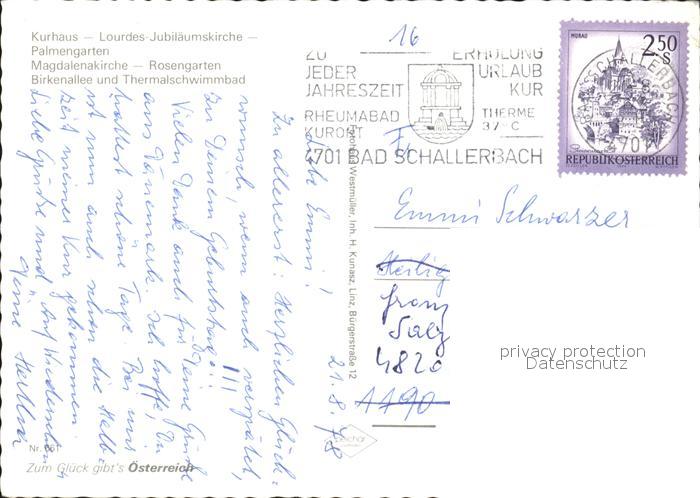 Kurhaus — Lourdes-Jubiläumskirche —
Palmengarten
Magdalenakirche — Rosengarten
Birkenallee und Thermalschwimmbad
16
ZU
JEDER
JAHRESZEIT
RHEUMABAD
KURORT
ERHOLUNG
URLAUB
KUR
THERME
37° C
4701 BAD SCHALLERBACH
MURAU
2.50
S
REPUBLIK ÖSTERREICH
BAD SCHALLERBACH
4701
21. 8. 78
Liebe Emmi!
Zu allererst: Herzlichen Glück-
wunsch, wenn auch verspätet,
zu Deinem Geburtstag!!!
Vielen Dank auch für Deine Grüße
aus Dänemark. Ich hoffe, Du
hattest schöne Tage. Bei mir
ist nun auch schon die Halb-
zeit meiner Kur gekommen.
Liebe Grüße und Auf Wiedersehen
Deine
Emmi Schwarzer
Heilig
Franz
Salz
4820
1190
Photohaus Westmüller, Inh. H. Kunasz, Linz, Bürgerstraße 12
Nr. 661
Zum Glück gibt's Österreich
privacy protection
Datenschutz